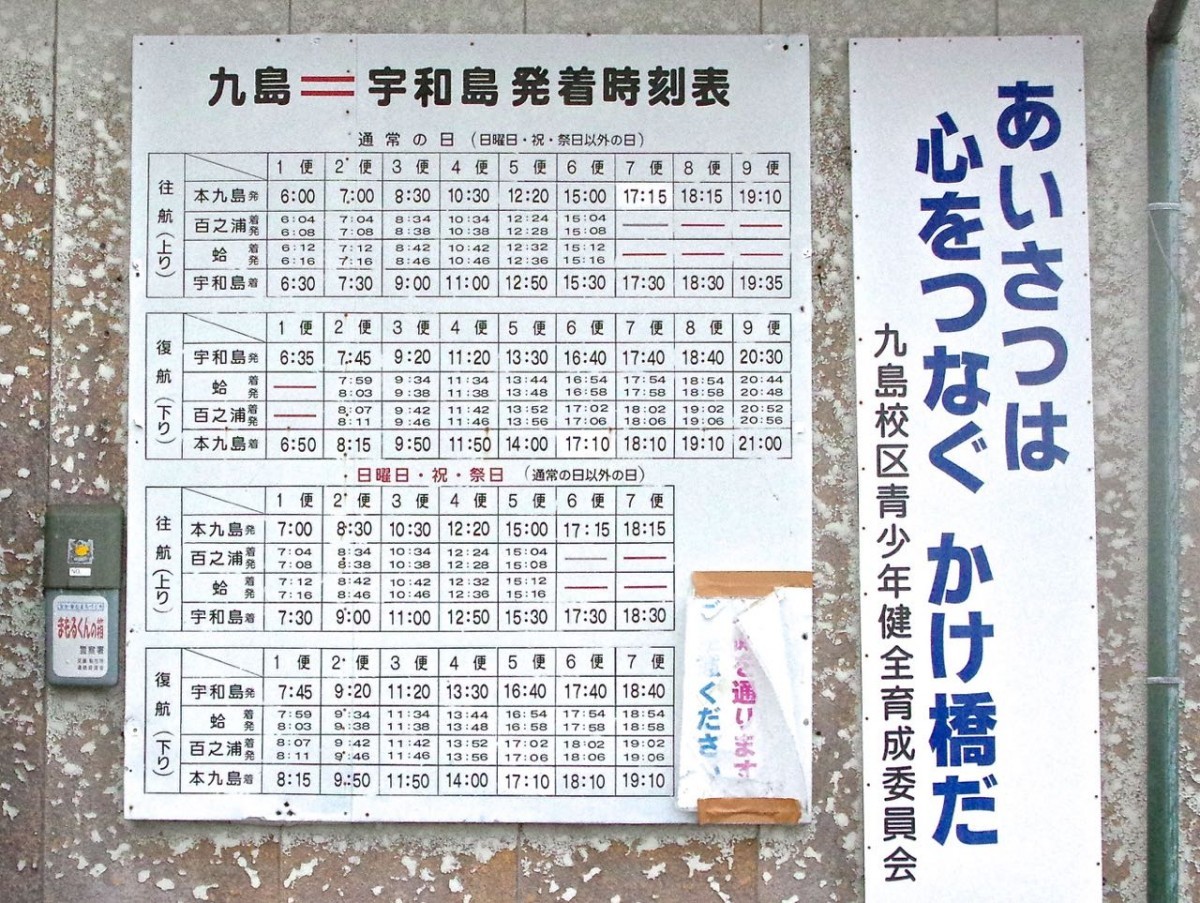 九島＝宇和島発着時刻表
通常の日 (日曜日・祝・祭日以外の日)
往航(上り)
1便 2便 3便 4便 5便 6便 7便 8便 9便
本九島発 6:00 7:00 8:30 10:30 12:20 15:00 17:15 18:15 19:10
百之浦着 6:04 7:04 8:34 10:34 12:24 15:04 — — —
発 6:08 7:08 8:38 10:38 12:28 15:08
蛤着 6:12 7:12 8:42 10:42 12:32 15:12 — — —
発 6:16 7:16 8:46 10:46 12:36 15:16
宇和島着 6:30 7:30 9:00 11:00 12:50 15:30 17:30 18:30 19:35
復航(下り)
1便 2便 3便 4便 5便 6便 7便 8便 9便
宇和島発 6:35 7:45 9:20 11:20 13:30 16:40 17:40 18:40 20:30
蛤着 — 7:59 9:34 11:34 13:44 16:54 17:54 18:54 20:44
発 8:03 9:38 11:38 13:48 16:58 17:58 18:58 20:48
百之浦着 — 8:07 9:42 11:42 13:52 17:02 18:02 19:02 20:52
発 8:11 9:46 11:46 13:56 17:06 18:06 19:06 20:56
本九島着 6:50 8:15 9:50 11:50 14:00 17:10 18:10 19:10 21:00
日曜日・祝・祭日 (通常の日以外の日)
往航(上り)
1便 2便 3便 4便 5便 6便 7便
本九島発 7:00 8:30 10:30 12:20 15:00 17:15 18:15
百之浦着 7:04 8:34 10:34 12:24 15:04 — —
発 7:08 8:38 10:38 12:28 15:08
蛤着 7:12 8:42 10:42 12:32 15:12 — —
発 7:16 8:46 10:46 12:36 15:16
宇和島着 7:30 9:00 11:00 12:50 15:30 17:30 18:30
復航(下り)
1便 2便 3便 4便 5便 6便 7便
宇和島発 7:45 9:20 11:20 13:30 16:40 17:40 18:40
蛤着 7:59 9:34 11:34 13:44 16:54 17:54 18:54
発 8:03 9:38 11:38 13:48 16:58 17:58 18:58
百之浦着 8:07 9:42 11:42 13:52 17:02 18:02 19:02
発 8:11 9:46 11:46 13:56 17:06 18:06 19:06
本九島着 8:15 9:50 11:50 14:00 17:10 18:10 19:10
通ります
くださ
あいさつは
心をつなぐ かけ橋だ
九島校区青少年健全育成委員会
NO.
まもるくんの箱
警察署